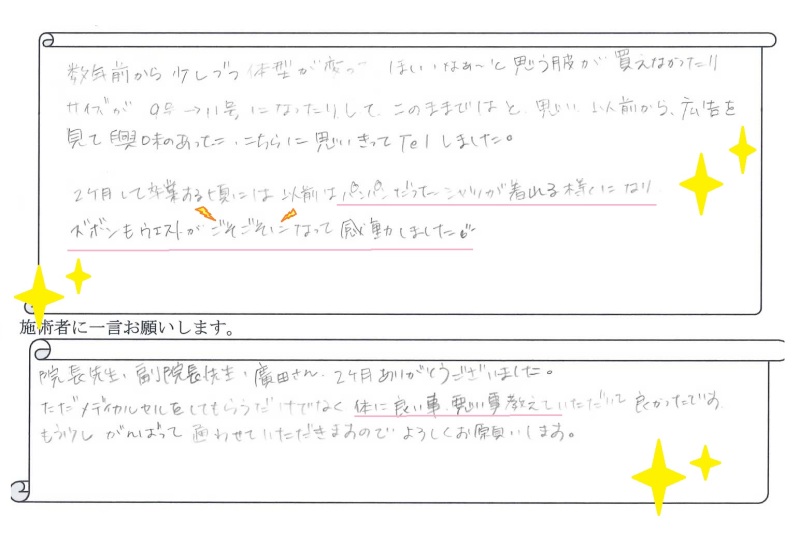 数年前から少しづつ体型が変って ほしいなぁ〜と思う服が買えなかったり
サイズが 9号→11号になったりして、このままではと、思い 以前から、広告を
見て興味のあった、こちらに思いきってTelしました。
2ヶ月して卒業する頃には以前はパンパンだったシャツが着れる様になり
ズボンもウエストがごそごそになって感動しました
施術者に一言お願いします。
院長先生、副院長先生、廣田さん、2ヶ月ありがとうございました。
ただメディカルセルをしてもらうだけでなく体に良い事、悪い事教えていただいて良かったです。
もう少しがんばって通わせていただきますのでよろしくお願いします。